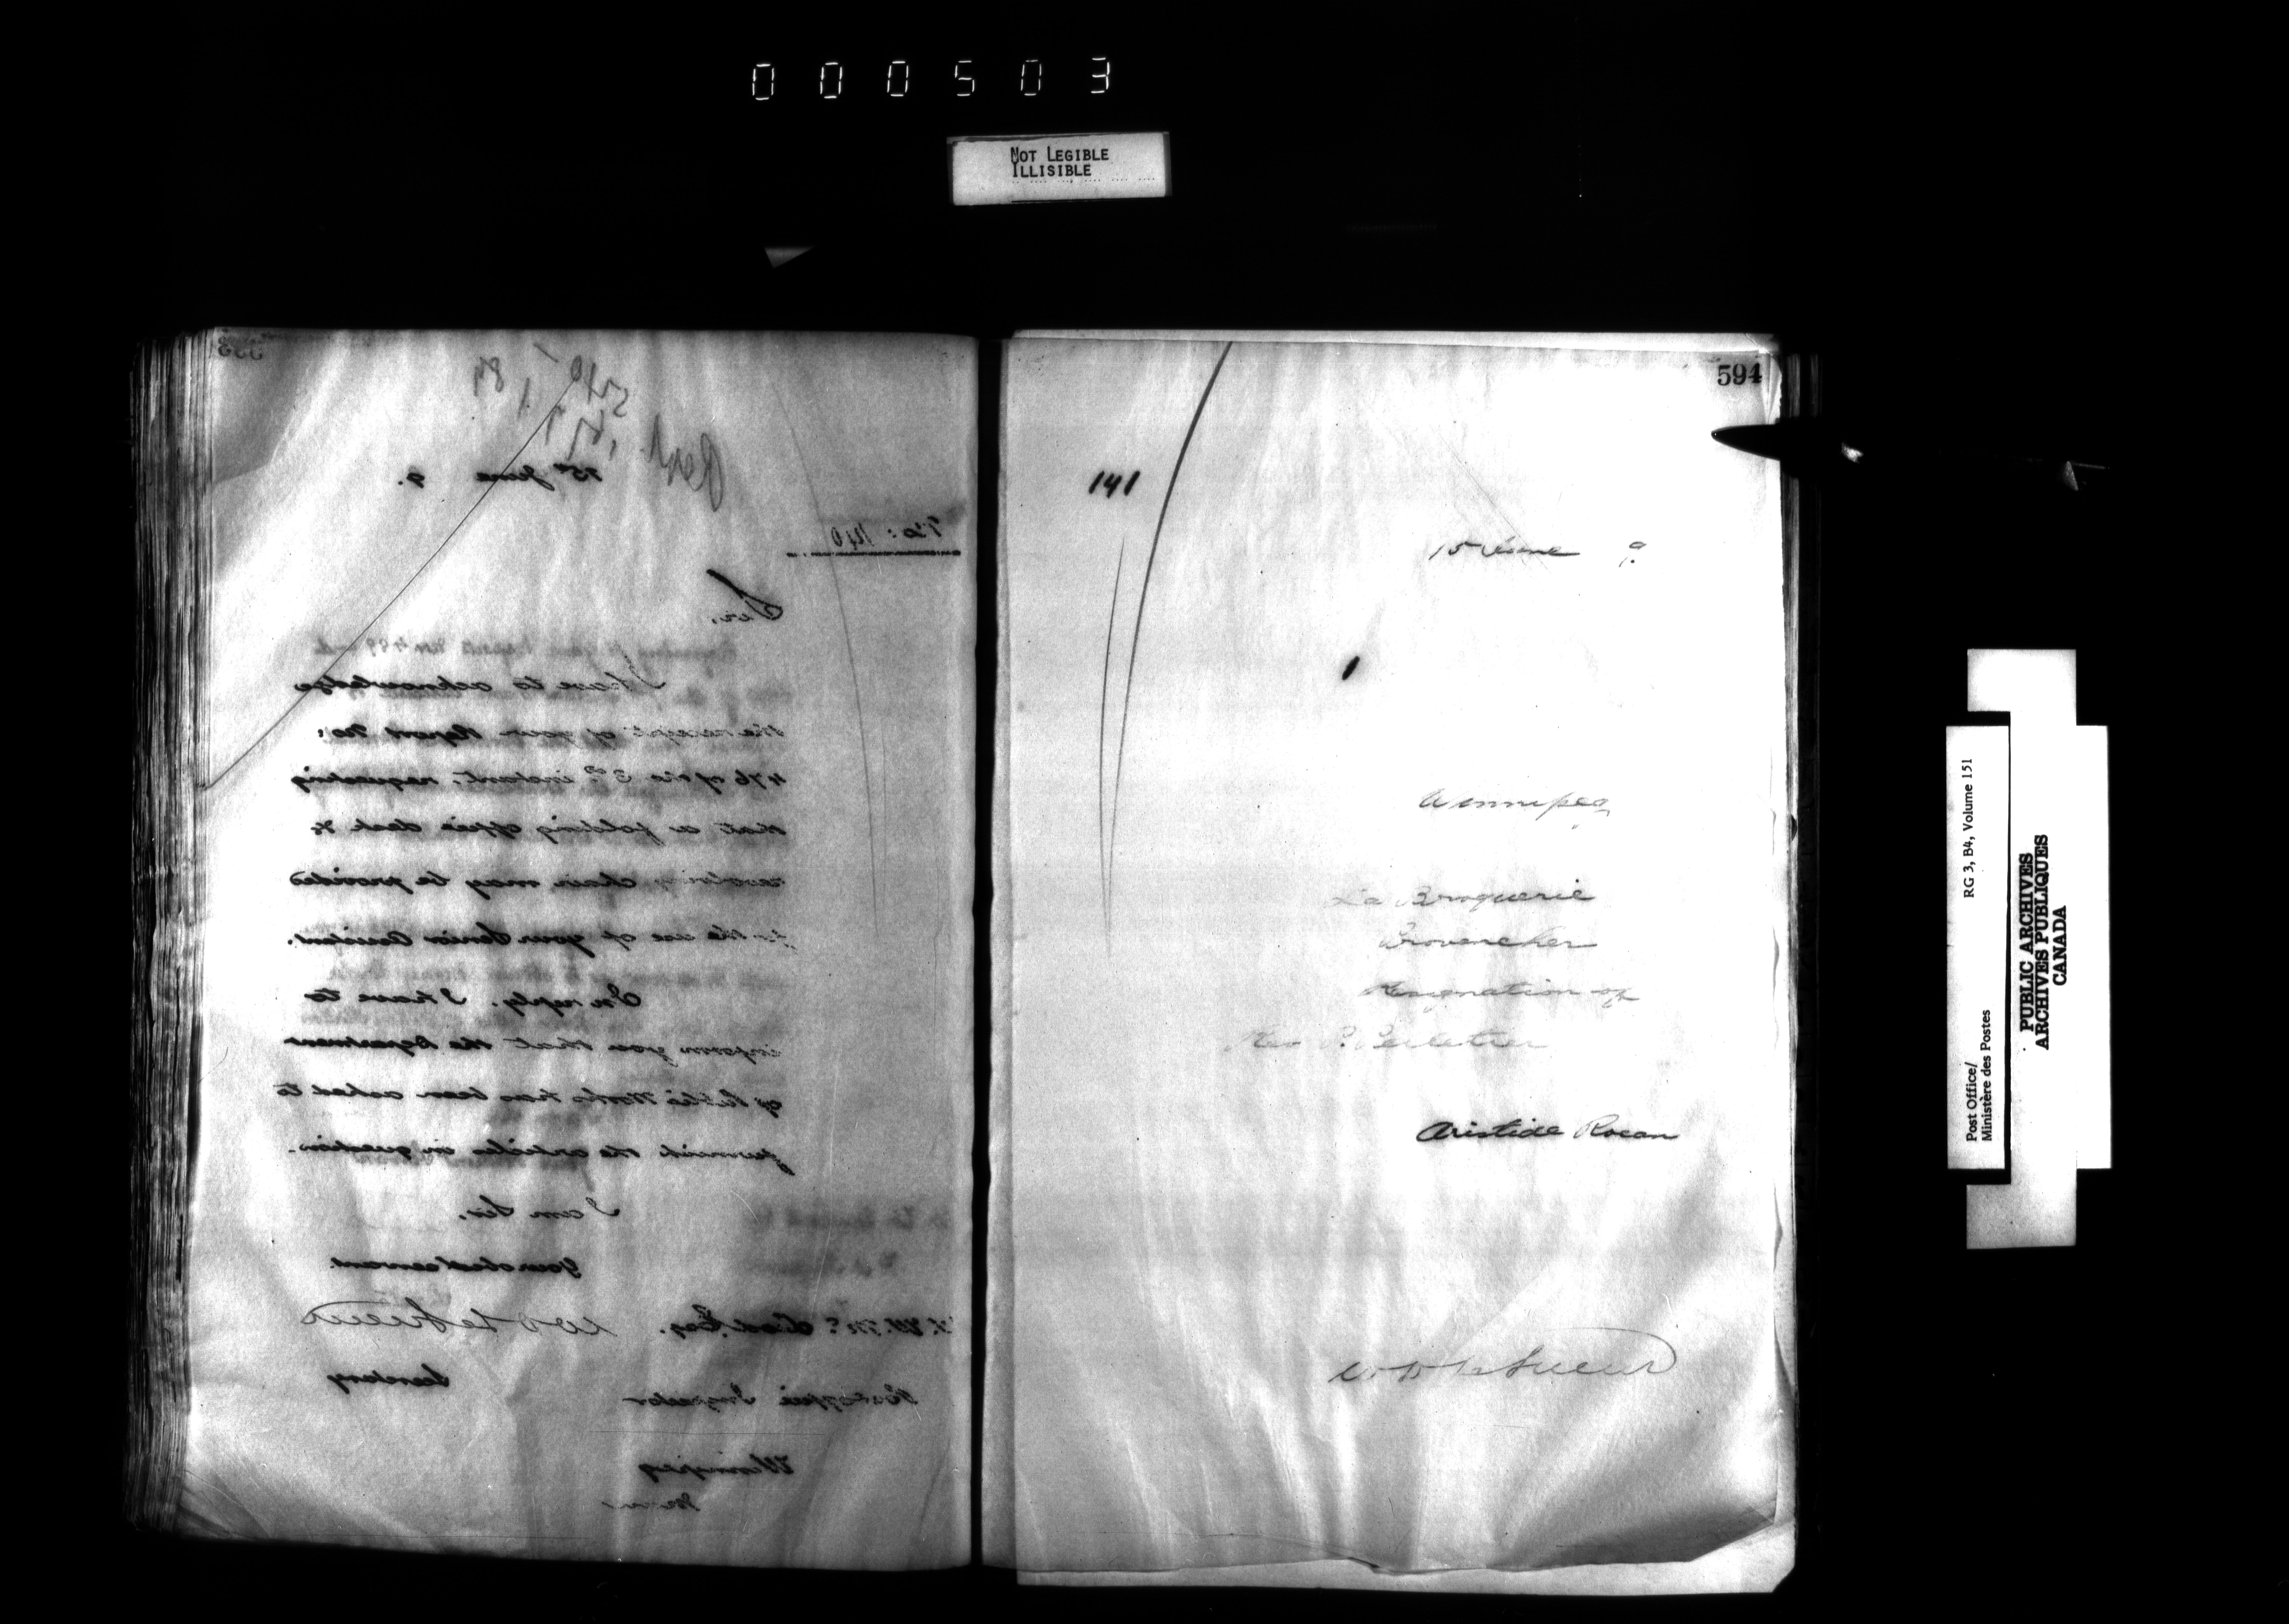 000503
NOT LEGIBLE
ILLISIBLE
15th June 9.
No: 140
Sir,
I have to acknowledge
the receipt of your Report No:
476 of the 3rd instant, requesting
that a folding office desk &
revolving chair may be provided
for the use of your Senior Assistant.
In reply, I have to
inform you that the Department
of Public Works has been asked to
furnish the articles in question.
I am Sir,
Your obed servant
W D LeSueur
Secretary
W. W. McLeod, Esq.
Post office Inspector
Winnipeg
Man
594
141
15 June 9.
Winnipeg
La Broquerie
Provencher
Resignation of
Rev P. Pelletier
Aristide Rocan
W D LeSueur
Post Office/
Ministère des Postes
RG 3, B4, Volume 151
PUBLIC ARCHIVES
ARCHIVES PUBLIQUES
CANADA